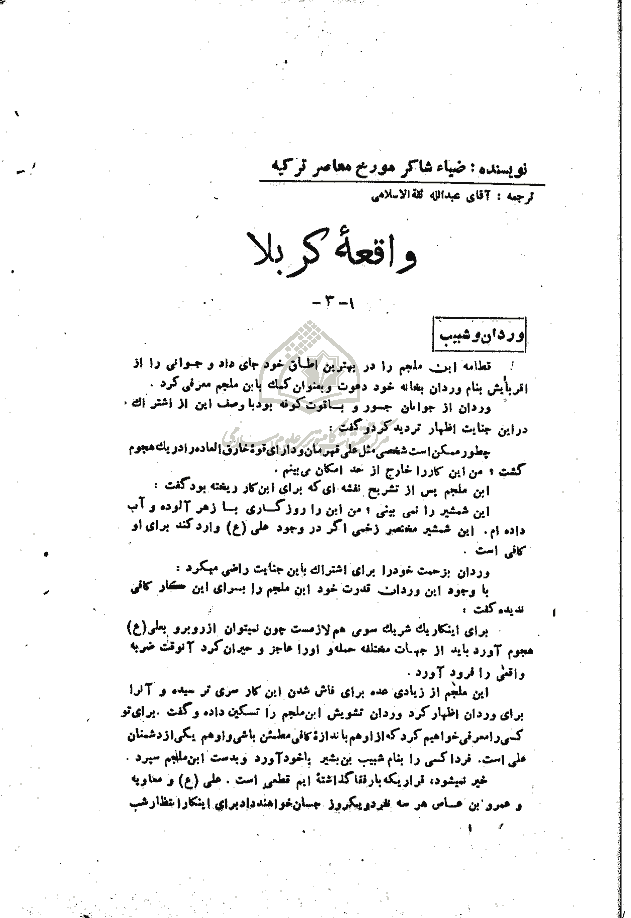 نویسنده : ضیاء شاکر مورخ معاصر ترکیه
ترجمه : آقای عبدالله ثقة‌الاسلامی
واقعهٔ کربلا
-۳-۱
وردان و شبیب
قطامه ابن ملجم را در بهترین اطاق خود جای داد و جوانی را از
اقربایش بنام وردان بخانه خود دعوت وبعنوان کمک بابن ملجم معرفی کرد .
وردان از جوانان جسور و باقوت کوفه بود با وصف این از اشتراک
دراین جنایت اظهار تردید کرد و گفت :
چطور ممکن است شخصی مثل علی قهرمان و دارای قوهٔ خارق العاده را در یک هجوم
گشت ؛ من این کار را خارج از حد امکان می‌بینم .
ابن ملجم پس از تشریح نقشه ای که برای این کار ریخته بود گفت :
این شمشیر را نمی بینی ؛ من این را روزگاری با زهر آلوده و آب
داده ام. این شمشیر مختصر زخمی اگر در وجود علی (ع) وارد کند برای او
کافی است .
وردان بزحمت خود را برای اشتراک باین جنایت راضی میکرد :
با وجود این وردان قدرت خود ابن ملجم را بسرای این کار کافی
ندیده گفت :
برای اینکار یک شریک سومی هم لازمست چون نمیتوان از روبرو بعلی (ع)
هجوم آورد باید از جهات مختلفه حمله و اورا عاجز و حیران کرد آنوقت ضربه
واقعی را فرود آورد .
ابن ملجم از زیادی عده برای فاش شدن این کار سری ترسیده و آنرا
برای وردان اظهار کرد وردان تشویش ابن ملجم را تسکین داده و گفت . برای تو
کسی را معرفی خواهیم کرد که از او هم باندازهٔ کافی مطمئن باشی و او هم یکی از دشمنان
علی است. فردا کسی را بنام شبیب بن بشیر باخود آورد و بدست ابن ملجم سپرد .
خیر نمیشود، قراریکه با رفقا گذاشته ایم قطعی است . علی (ع) و معاویه
و عمرو بن عاص هر سه نفر در یکروز جان خواهند داد برای اینکار انتظار شب